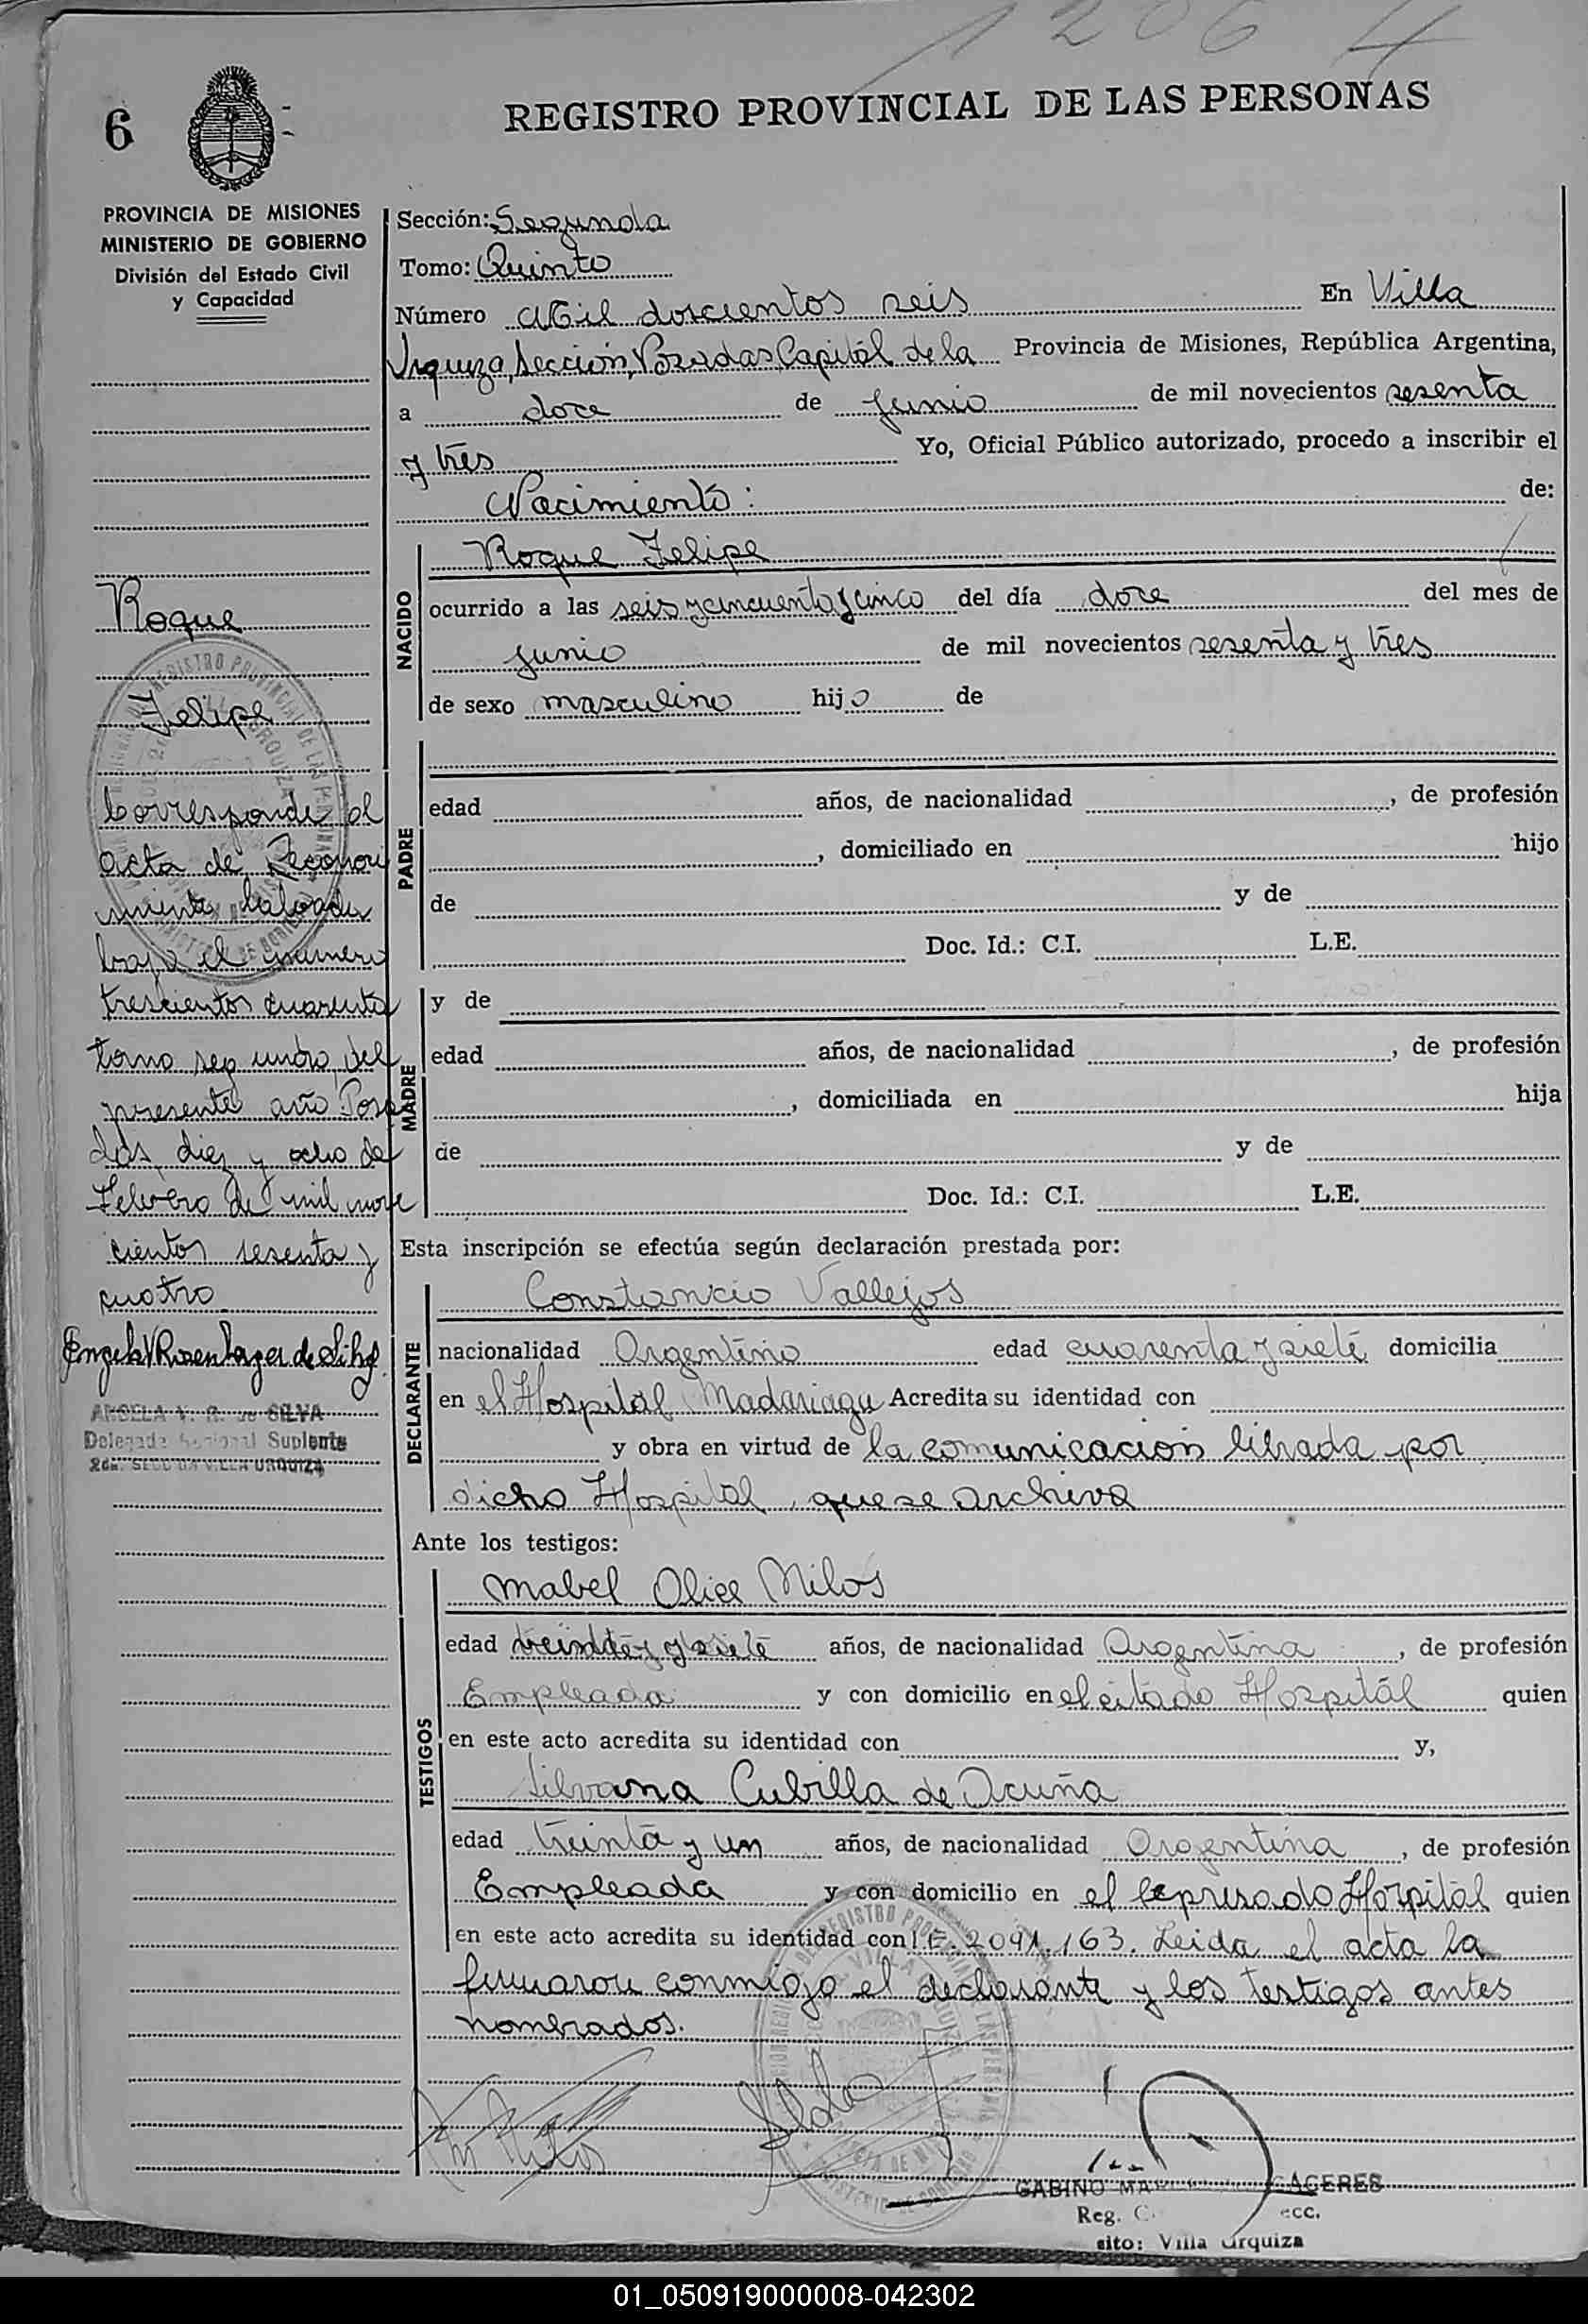 1206
6
REGISTRO PROVINCIAL DE LAS PERSONAS
PROVINCIA DE MISIONES
MINISTERIO DE GOBIERNO
División del Estado Civil
y Capacidad
Sección: Segunda
Tomo: Quinto
Número Mil doscientos seis En Villa
Urquiza, Sección, Posadas Capital de la Provincia de Misiones, República Argentina,
a doce de junio de mil novecientos sesenta
y tres Yo, Oficial Público autorizado, procedo a inscribir el
Nacimiento: de:
NACIDO
Roque Felipe
ocurrido a las seis y cincuenta y cinco del día doce del mes de
junio de mil novecientos sesenta y tres
de sexo masculino hijo de
PADRE
edad años, de nacionalidad , de profesión
, domiciliado en hijo
de y de
Doc. Id.: C.I. L.E.
MADRE
y de
edad años, de nacionalidad , de profesión
, domiciliada en hija
de y de
Doc. Id.: C.I. L.E.
Roque
Felipe
Corresponde al
acta de Reconoci
miento labrada
bajo el número
trescientos cuarenta
tomo segundo del
presente año Posa
das, diez y ocho de
Febrero de mil nove
cientos sesenta y
cuatro
ANGELA V. R. de SILVA
Delegada Seccional Suplente
2da. SECCION VILLA URQUIZA
Esta inscripción se efectúa según declaración prestada por:
DECLARANTE
Constancio Vallejos
nacionalidad Argentino edad cuarenta y siete domicilia
en el Hospital Madariaga Acredita su identidad con
y obra en virtud de la comunicación librada por
dicho Hospital, que se archiva
Ante los testigos:
TESTIGOS
Mabel Olice Milos
edad y siete años, de nacionalidad Argentina, de profesión
Empleada y con domicilio en el citado Hospital quien
en este acto acredita su identidad con y,
Silvana Cubilla de Acuña
edad treinta y un años, de nacionalidad Argentina, de profesión
Empleada y con domicilio en el expresado Hospital quien
en este acto acredita su identidad con 2091.163. Leida el acta la
firmaron conmigo el declarante y los testigos antes
nombrados.
GABINO CACERES
Reg.
sito: Villa Urquiza
01_050919000008-042302